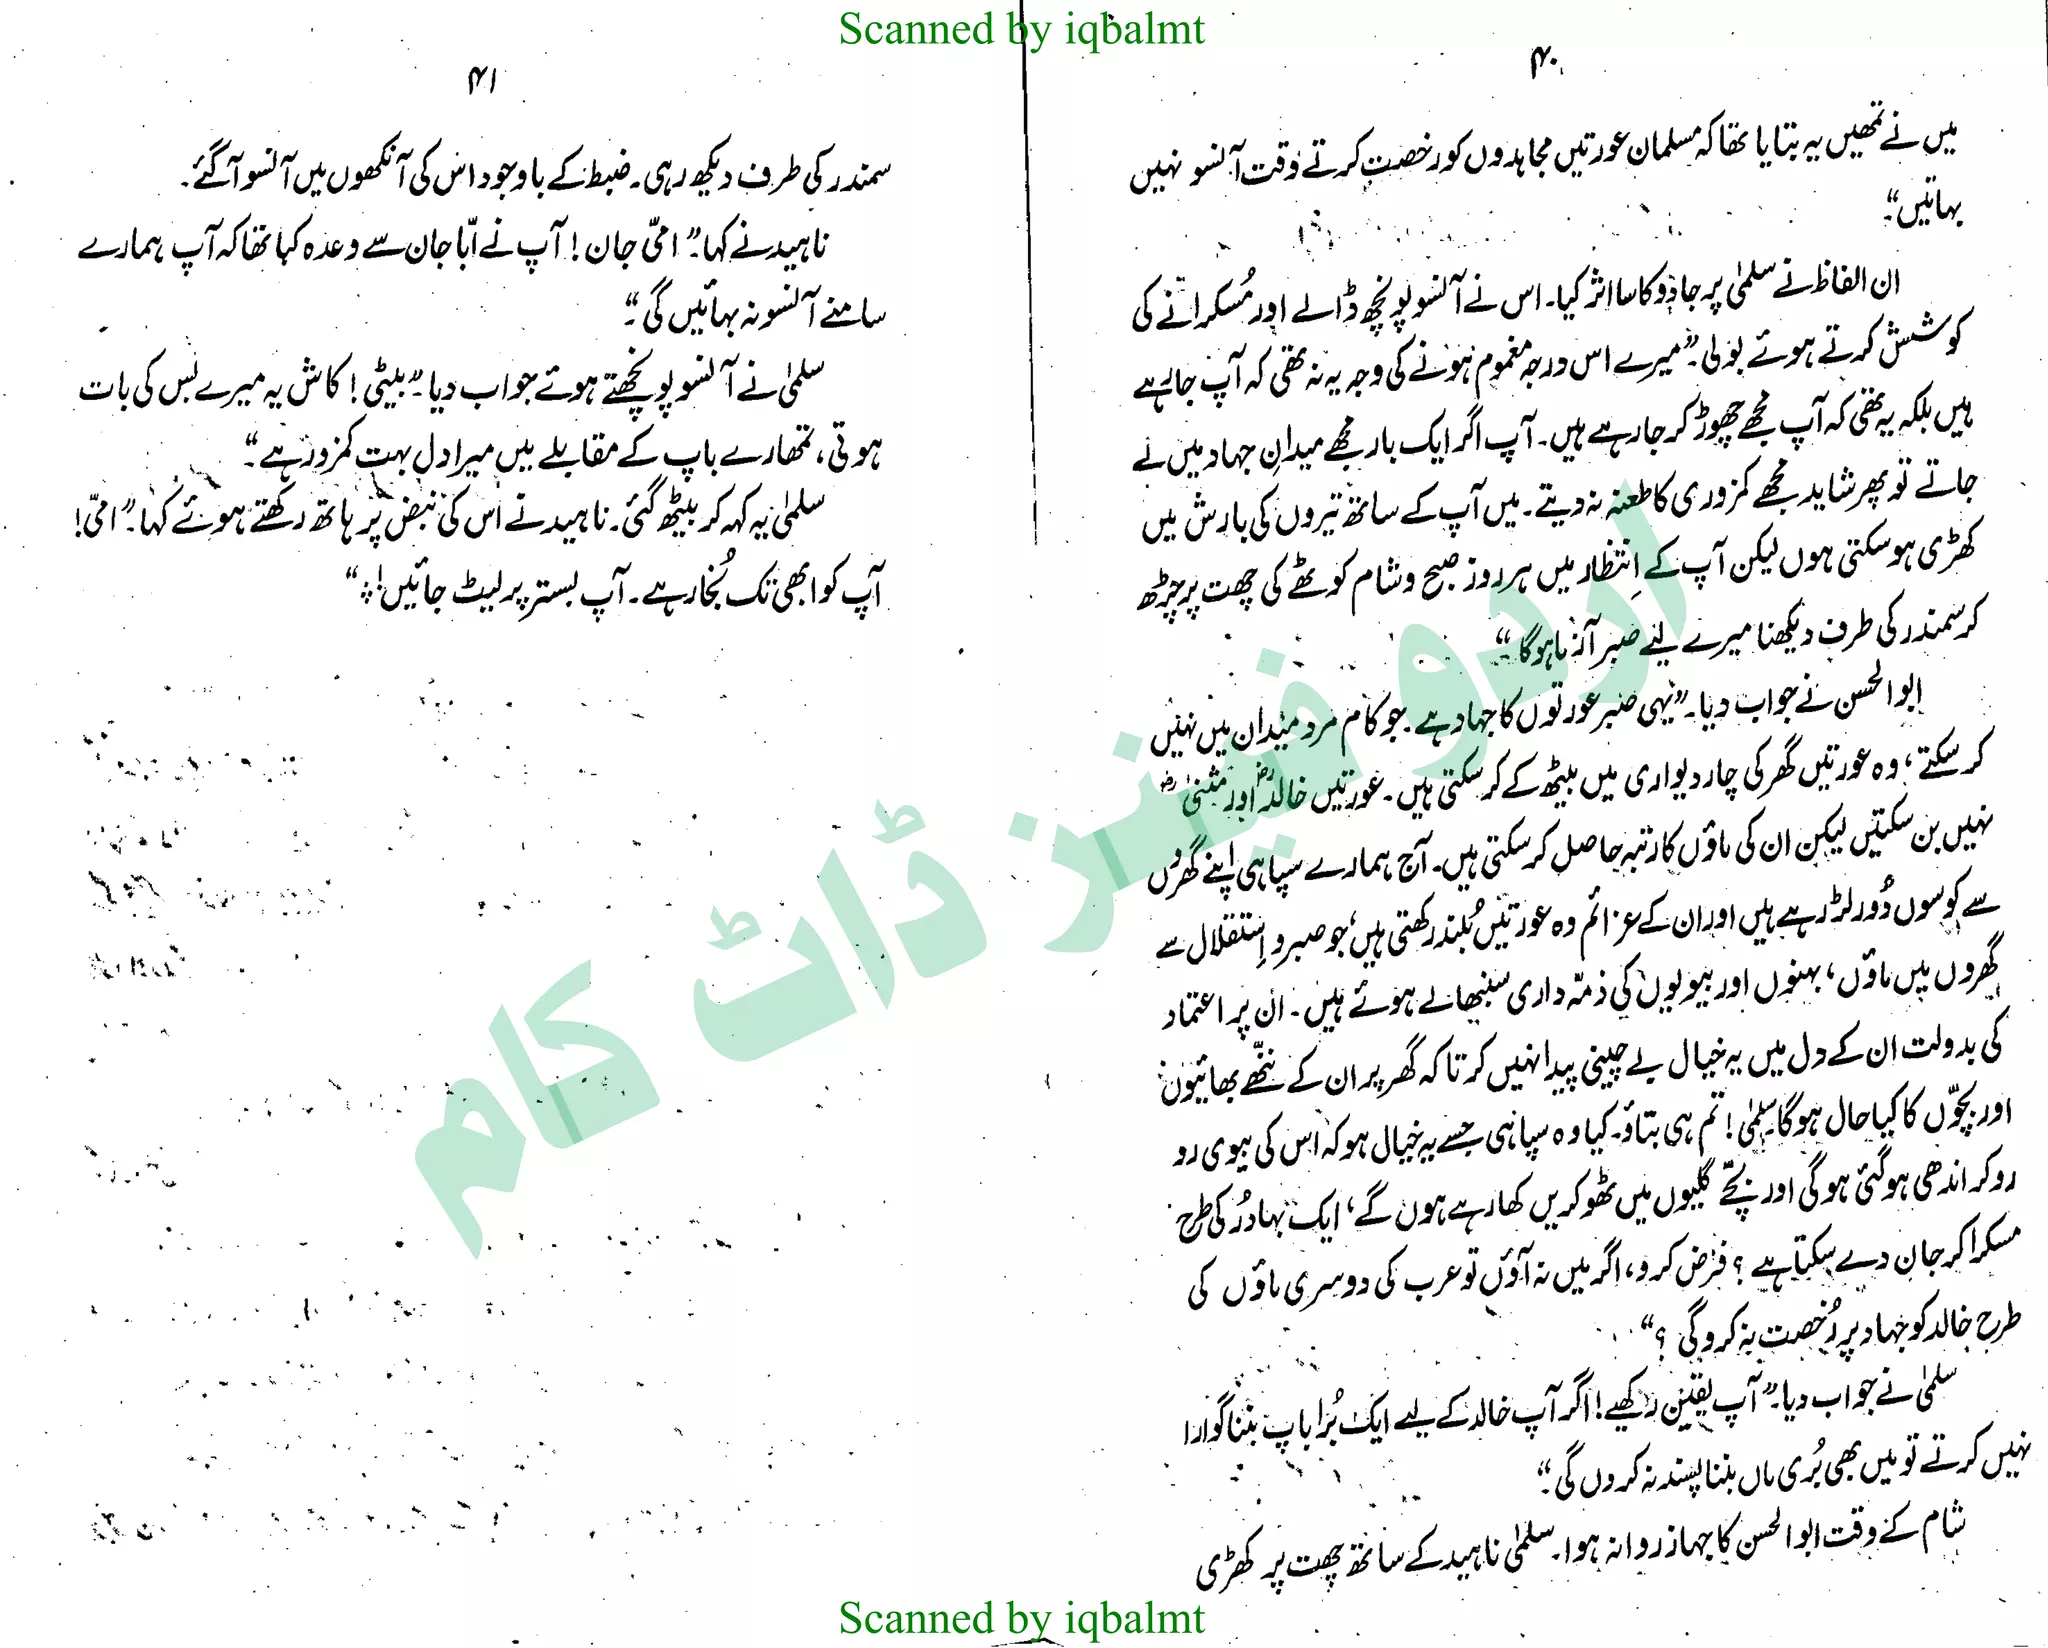 Scanned by iqbalmt
۴۰
میں نے تمھیں یہ بتایا تھا کہ مسلمان عورتیں مجاہدوں کو رخصت کرتے وقت آنسو نہیں
بہاتیں۔“
ان الفاظ نے سلمیٰ پر جادُو کا سا اثر کیا۔ اس نے آنسو پونچھ ڈالے اور مُسکرانے کی
کوشش کرتے ہوئے بولی۔”میرے اس درجہ مغموم ہونے کی وجہ یہ نہ تھی کہ آپ جا رہے
ہیں بلکہ یہ تھی کہ آپ مجھے چھوڑ کر جا رہے ہیں۔ آپ اگر ایک بار مجھے میدانِ جہاد میں لے
جاتے تو پھر شاید مجھے کمزوری کا طعنہ نہ دیتے۔ میں آپ کے ساتھ تیروں کی بارش میں
کھڑی ہو سکتی ہوں لیکن آپ کے اِنتظار میں ہر روز صبح و شام کوٹھے کی چھت پر چڑھ
کر سمندر کی طرف دیکھنا میرے لیے صبر آزما ہوگا۔“
ابوالحسن نے جواب دیا۔”یہی صبر عورتوں کا جہاد ہے۔ جو کام مرد میدان میں نہیں
کر سکتے، وہ عورتیں گھر کی چار دیواری میں بیٹھ کے کر سکتی ہیں۔ عورتیں خالدؓ اور مثنیٰؓ
نہیں بن سکتیں لیکن ان کی ماؤں کا رتبہ حاصل کر سکتی ہیں۔ آج ہمارے سپاہی اپنے گھروں
سے کوسوں دُور لڑ رہے ہیں اور ان کے عزائم وہ عورتیں بُلند رکھتی ہیں، جو صبر و اِستقلال سے
گھروں میں ماؤں، بہنوں اور بیویوں کی ذمّہ داری سنبھالے ہوئے ہیں۔ ان پر اعتماد
کی بدولت ان کے دل میں یہ خیال بے چینی پیدا نہیں کرتا کہ گھر پر ان کے ننھّے بھائیوں
اور بچّوں کا کیا حال ہوگا۔ سلمیٰ! تم ہی بتاؤ۔ کیا وہ سپاہی جسے یہ خیال ہو کہ اس کی بیوی رو
رو کر اندھی ہو گئی ہوگی اور بچّے گلیوں میں ٹھوکریں کھا رہے ہوں گے، ایک بہادُر کی طرح
مسکرا کر جان دے سکتا ہے؟ فرض کرو، اگر میں نہ آؤں تو عرب کی دوسری ماؤں کی
طرح خالد کو جہاد پر رُخصت نہ کرو گی؟“
سلمیٰ نے جواب دیا۔”آپ یقین رکھیے! اگر آپ خالد کے لیے ایک بُرا باپ بننا گوارا
نہیں کرتے تو میں بھی بُری ماں بننا پسند نہ کروں گی۔“
شام کے وقت ابوالحسن کا جہاز روانہ ہوا۔ سلمیٰ ناہید کے ساتھ چھت پر کھڑی
۴۱
سمندر کی طرف دیکھ رہی۔ ضبط کے باوجود اس کی آنکھوں میں آنسو آ گئے۔
ناہید نے کہا۔”امّی جان! آپ نے ابّا جان سے وعدہ کیا تھا کہ آپ ہمارے
سامنے آنسو نہ بہائیں گی۔“
سلمیٰ نے آنسو پونچھتے ہوئے جواب دیا۔”بیٹی! کاش یہ میرے بس کی بات
ہوتی، تمھارے باپ کے مقابلے میں میرا دل بہت کمزور ہے۔“
سلمیٰ یہ کہہ کر بیٹھ گئی۔ ناہید نے اس کی نبض پر ہاتھ رکھتے ہوئے کہا۔”امّی!
آپ کو ابھی تک بُخار ہے۔ آپ بستر پر لیٹ جائیں!“
اردو فینز ڈاٹ کام
Scanned by iqbalmt